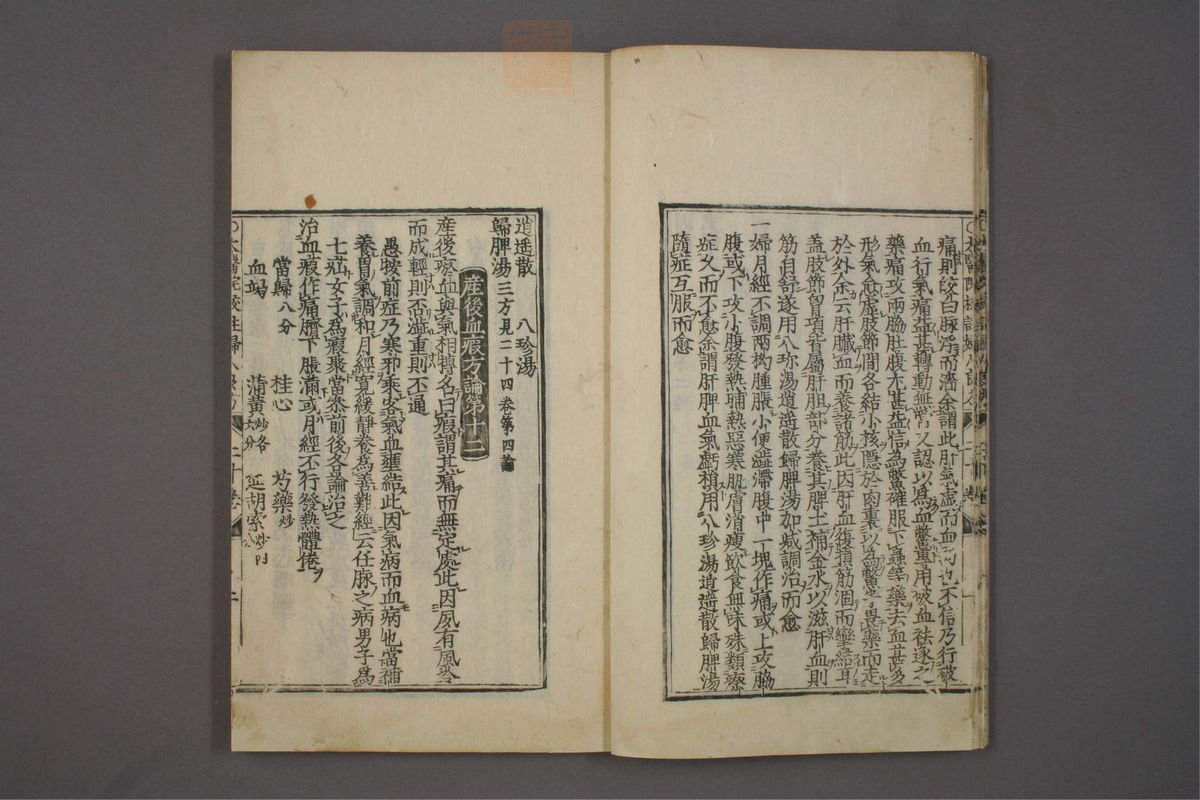 痛則皎白脉浮而濇余謂此肝氣虛而血弱也不信乃行破
血行氣痛益甚轉動無常又認以爲血鱉專用破血祛逐之
藥痛攻兩脇肚腹尤甚益信爲鱉確服下蟲等藥去血甚多
形氣愈虛肢節間各結小核隱於肉裏以爲鱉子畏藥而走
於外余云肝臟血而養諸筋此因肝血復損筋涸而攣結耳
蓋肢節胷項皆屬肝胆部分養其脾土補金水以滋肝血則
筋自舒遂用八珍湯逍遥散歸脾湯加减調治而愈
一婦月經不調兩拗腫脹小便澁滯腹中一塊作痛或上攻脇
腹或下攻小腹發熱晡熱惡寒肌膚消瘦飲食無味殊類瘵
症久而不愈余謂肝脾血氣虧損用八珍湯逍遥散歸脾湯
隨症互服而愈
逍遥散 八珍湯
歸脾湯三方見二十四卷第四論
産後血瘕方論第十二
産後瘀血與氣相摶名曰瘕謂其痛而無定處此因夙有風冷
而成輕則否澁重則不通
愚按前症乃寒邪乘客氣血壅結此因氣病而血病也當補
養胃氣調和月經寛緩靜養爲善難經云任脉之病男子爲
七疝女子爲瘕聚當叅前後各論治之
治血瘕作痛臍下脹滿或月經不行發熱體倦
當歸八分 桂心 芍藥炒
血竭 蒲黄炒各六分 延胡索炒八